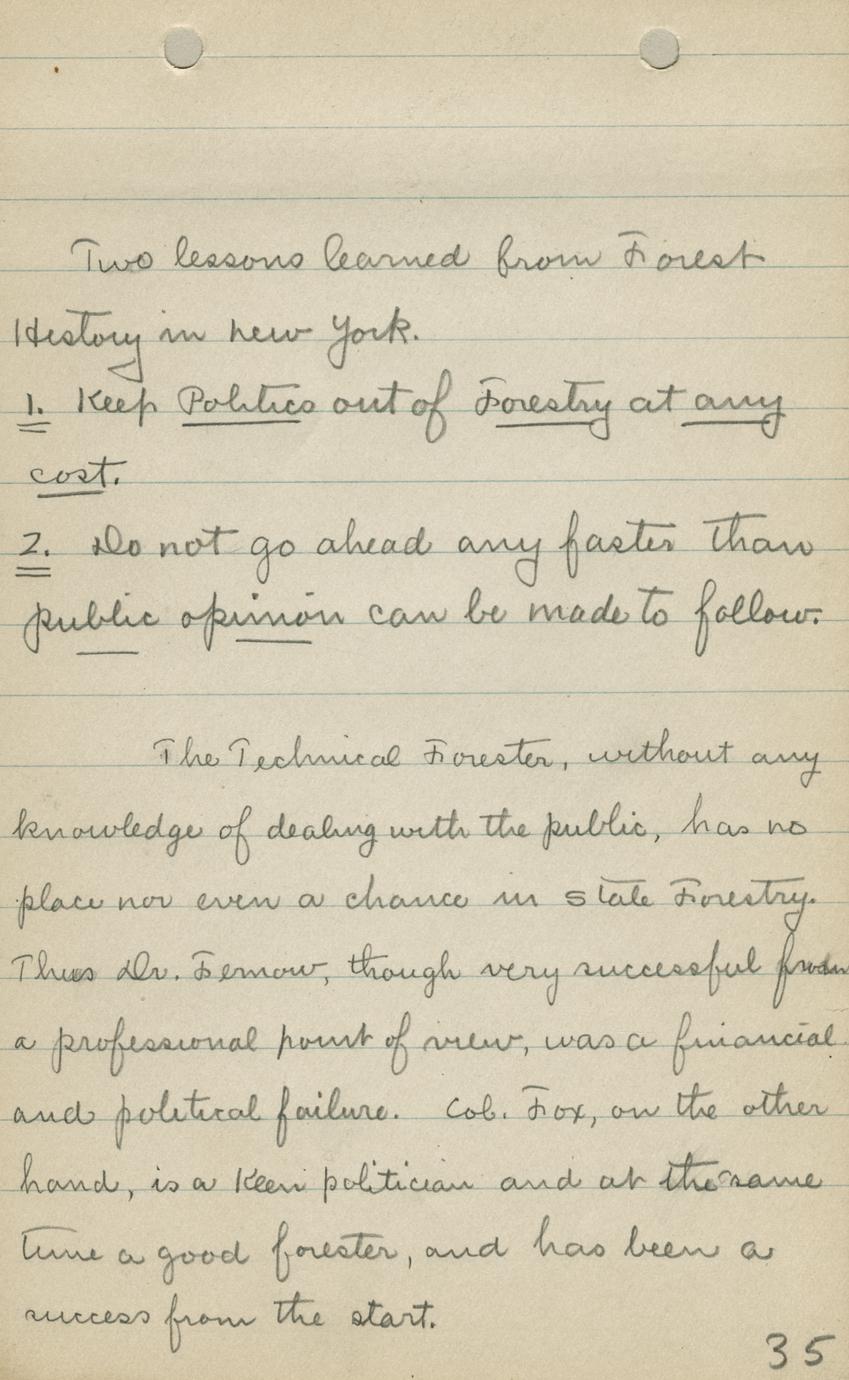 Two lessons learned from Forest
History in new York.
1. Keep Politics out of Forestry at any
cost.
2. Do not go ahead any faster than
public opinion can be made to follow.
The Technical Forester, without any
knowledge of dealing with the public, has no
place nor even a chance in state Forestry.
Thus Dr. Fernow, though very successful from
a professional point of view, was a financial
and political failure. Col. Fox, on the other
hand, is a Keen politician and at the same
time a good forester, and has been a
success from the start.
35